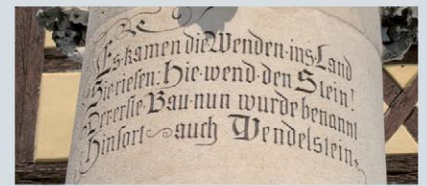 Es·kamen die Wenden·ins·Land
Sie riefen: Hie·wend·den Stein!
Der erste·Bau·nun wurde benannt
Hinfort auch Wendelstein.